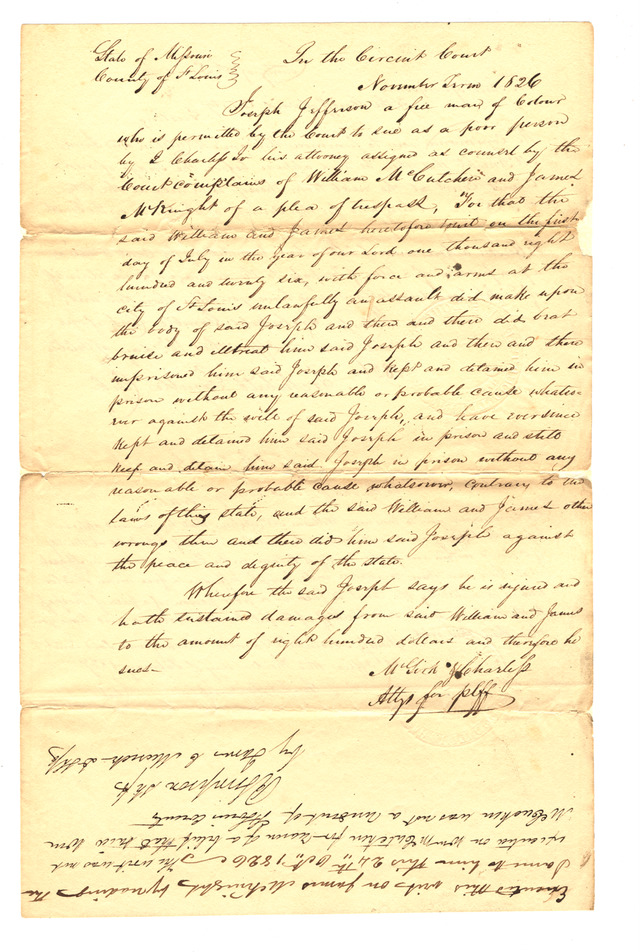 State of Missouri
County of St Louis
In the Circuit Court
November Term 1826
Joseph Jefferson a free man of Colour
who is permitted by the Court to sue as a poor person
by J Charless Jr his attorney assigned as counsel by the
Court complains of William McCutchen and James
McKnight of a plea of trespass, For that the
said William and James heretofore towit on the first
day of July in the year of our Lord one thousand eight
hundred and twenty six, with force and arms at the
city of St Louis unlawfully an assault did make upon
the body of said Joseph and then and there did beat
bruise and illtreat him said Joseph and then and there
imprisoned him said Joseph and kept and detained him in
prison without any reasonable or probable cause whatso=
ever against the will of said Joseph, and have ever since
kept and detained him said Joseph in prison and still
keep and detain him said Joseph in prison without any
reasonable or probable cause whatsoever, contrary to the
laws of this state, and the said William and James other
wrongs then and there did him said Joseph against
the peace and dignity of the state.
Wherefore the said Joseph says he is injured and
hath sustained damages from said William and James
to the amount of eight hundred dollars and therefore he
sues-
McGirk & Charless
Attys for plff
Executed this writ on James McKnight by reading the
Same to him this 24th Octr 1826 The writ was not
executed on Wm McCutchen for reason of a belief that said Wm
McCutchen was not a resident of County
R Simpson Shff
by James C Musick D Shff